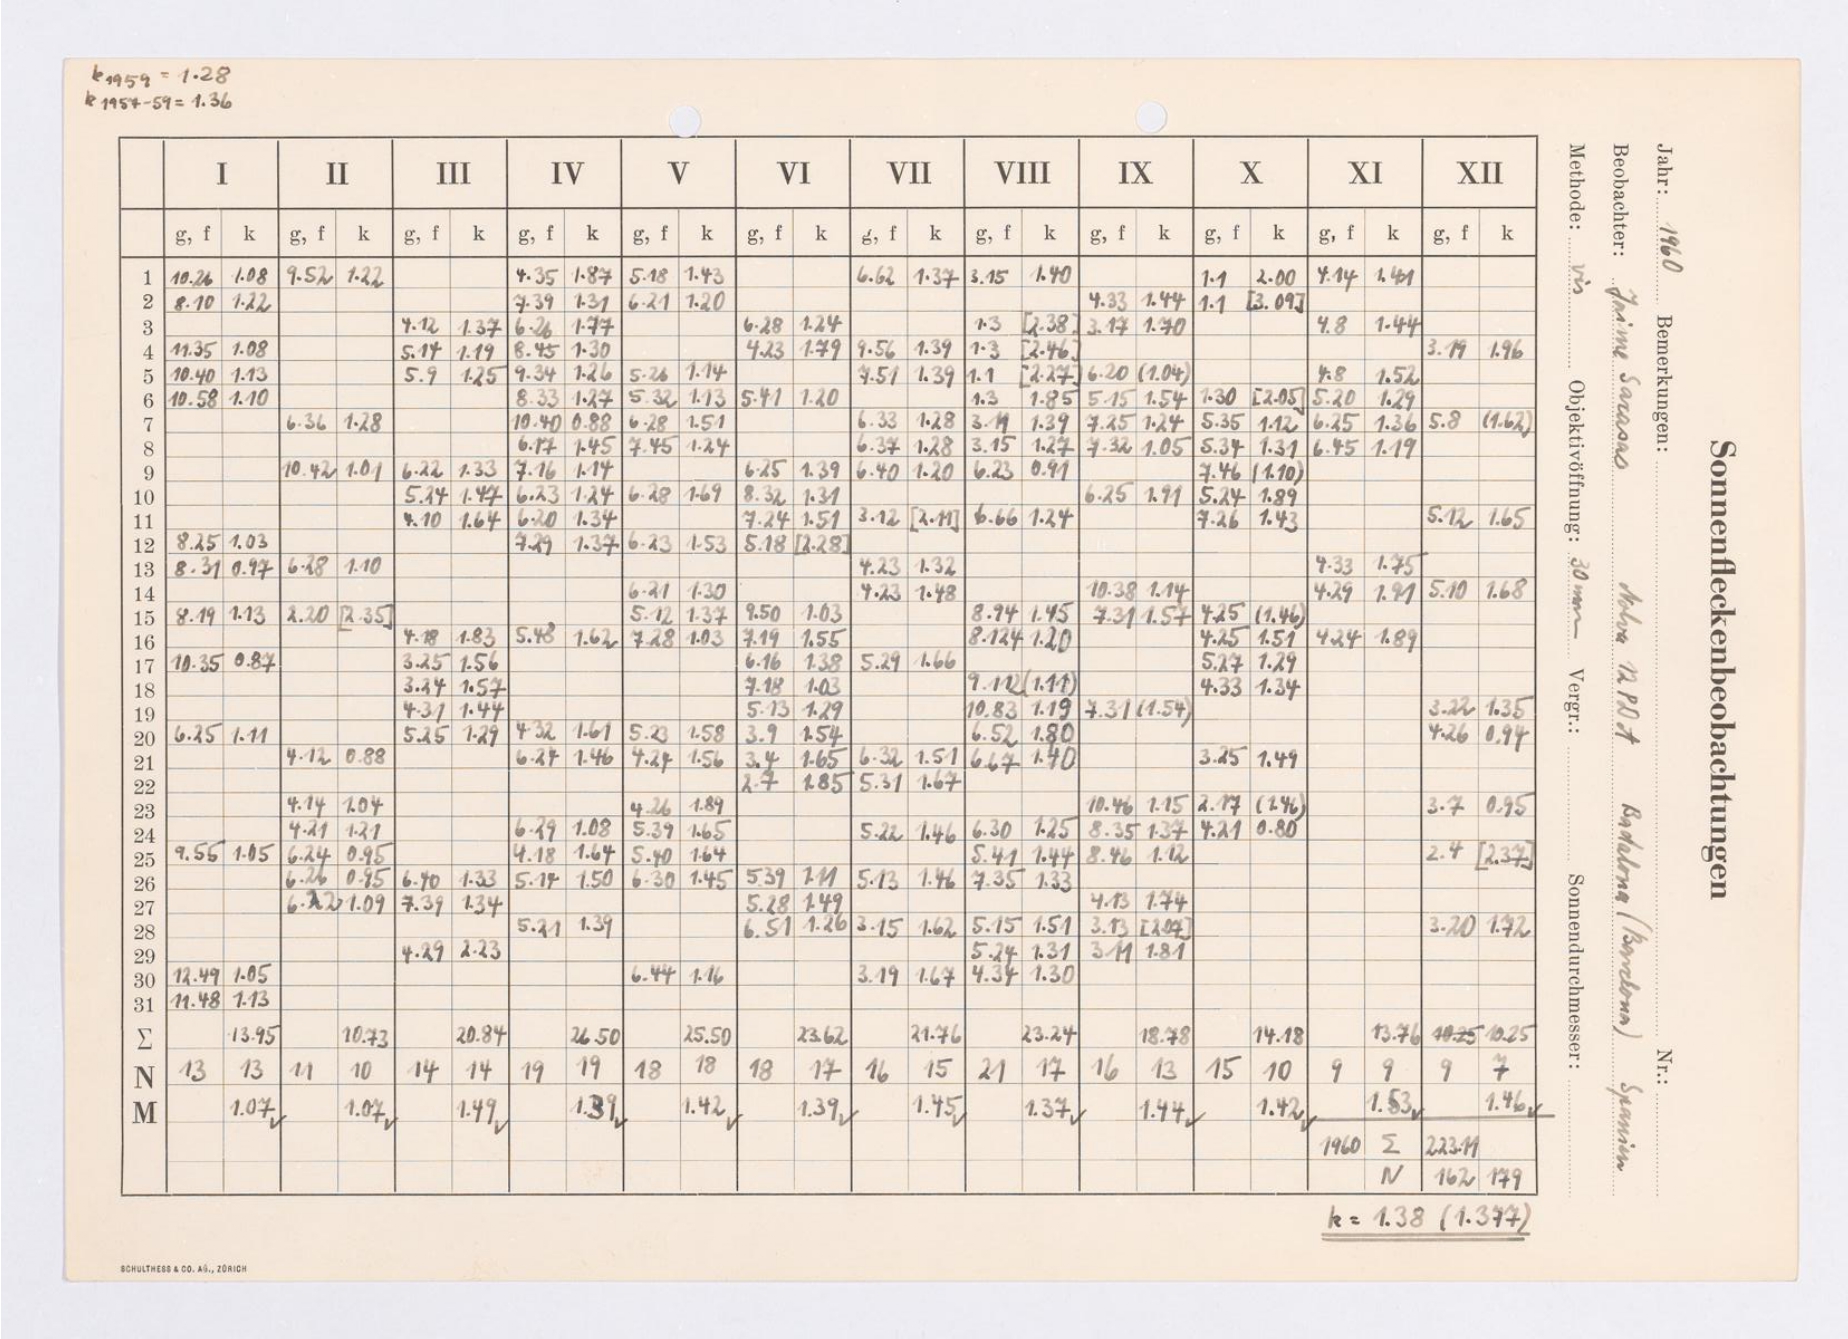 k 1959 = 1.28
k 1957-59 = 1.36
Sonnenfleckenbeobachtungen
Jahr: 1960 Bemerkungen: Nr.:
Beobachter: Jaime Sarasas Badalona (Barcelona) Spanien
Methode: vis Objektivöffnung: 30 mm Vergr.: Sonnendurchmesser:
I II III IV V VI VII VIII IX X XI XII
g, f k g, f k g, f k g, f k g, f k g, f k g, f k g, f k g, f k g, f k g, f k g, f k
1 10.26 1.08 9.52 1.22 4.35 1.87 5.18 1.43 6.62 1.37 3.15 1.40 1.1 2.00 4.14 1.41
2 8.10 1.22 7.39 1.31 6.21 1.20 4.33 1.44 1.1 [3.09]
3 4.12 1.37 6.26 1.77 6.28 1.24 1.3 [2.38] 3.17 1.70 4.8 1.44
4 11.35 1.08 5.14 1.19 8.45 1.30 4.23 1.79 9.56 1.39 1.3 [2.46] 3.19 1.96
5 10.40 1.13 5.9 1.25 9.34 1.26 5.26 1.14 7.51 1.39 1.1 [2.27] 6.20 (1.04) 4.8 1.52
6 10.58 1.10 8.33 1.27 5.32 1.13 5.41 1.20 1.3 1.85 5.15 1.54 1.30 [2.05] 5.20 1.29
7 6.36 1.28 10.40 0.88 6.28 1.51 6.33 1.28 3.11 1.39 7.25 1.24 5.35 1.12 6.25 1.36 5.8 (1.62)
8 6.17 1.45 7.45 1.24 6.37 1.28 3.15 1.27 7.32 1.05 5.34 1.31 6.45 1.19
9 10.42 1.01 6.22 1.33 7.16 1.14 6.25 1.39 6.40 1.20 6.23 0.91 7.46 (1.10)
10 5.24 1.47 6.23 1.24 6.28 1.69 8.32 1.31 6.25 1.91 5.24 1.89
11 4.10 1.64 6.20 1.34 7.24 1.51 3.12 [2.11] 6.66 1.24 7.26 1.43 5.12 1.65
12 8.25 1.03 7.29 1.37 6.23 1.53 5.18 [2.28]
13 8.31 0.97 6.28 1.10 4.23 1.32 4.33 1.75
14 6.21 1.30 4.23 1.48 10.38 1.14 4.29 1.91 5.10 1.68
15 8.19 1.13 2.20 [2.35] 5.12 1.37 9.50 1.03 8.94 1.45 7.31 1.57 4.25 (1.46)
16 4.18 1.83 5.48 1.62 7.28 1.03 7.19 1.55 8.124 1.20 4.25 1.51 4.24 1.89
17 10.35 0.87 3.25 1.56 6.16 1.38 5.29 1.66 5.27 1.29
18 3.24 1.57 7.18 1.03 9.112 (1.11) 4.33 1.34
19 4.31 1.44 5.13 1.29 10.83 1.19 7.31 (1.54) 3.22 1.35
20 6.25 1.11 5.25 1.29 4.32 1.61 5.23 1.58 3.9 1.54 6.52 1.80 4.26 0.94
21 4.12 0.88 6.24 1.46 4.24 1.56 3.4 1.65 6.32 1.51 6.67 1.40 3.25 1.49
22 2.7 1.85 5.31 1.67
23 4.14 1.04 4.26 1.89 10.46 1.15 2.17 (1.46) 3.7 0.95
24 4.21 1.21 6.29 1.08 5.39 1.65 5.22 1.46 6.30 1.25 8.35 1.37 4.21 0.80
25 9.55 1.05 6.24 0.95 4.18 1.64 5.40 1.64 5.41 1.44 8.46 1.12 2.4 [2.37]
26 6.26 0.95 6.40 1.33 5.14 1.50 6.30 1.45 5.39 1.11 5.13 1.46 7.35 1.33
27 6.22 1.09 7.39 1.34 5.28 1.49 4.13 1.74
28 5.21 1.39 6.51 1.26 3.15 1.62 5.15 1.51 3.13 [2.07] 3.20 1.72
29 4.29 2.23 5.24 1.31 3.11 1.81
30 12.49 1.05 6.44 1.16 3.19 1.67 4.34 1.30
31 11.48 1.13
Σ 13.95 10.73 20.84 26.50 25.50 23.62 21.76 23.24 18.78 14.18 13.76 10.25 10.25
N 13 13 11 10 14 14 19 19 18 18 18 17 16 15 21 17 16 13 15 10 9 9 9 7
M 1.07 1.07 1.49 1.39 1.42 1.39 1.45 1.37 1.44 1.42 1.53 1.46
1960 Σ 223.11
N 162 179
k = 1.38 (1.377)
SCHULTHESS & CO. AG., ZÜRICH